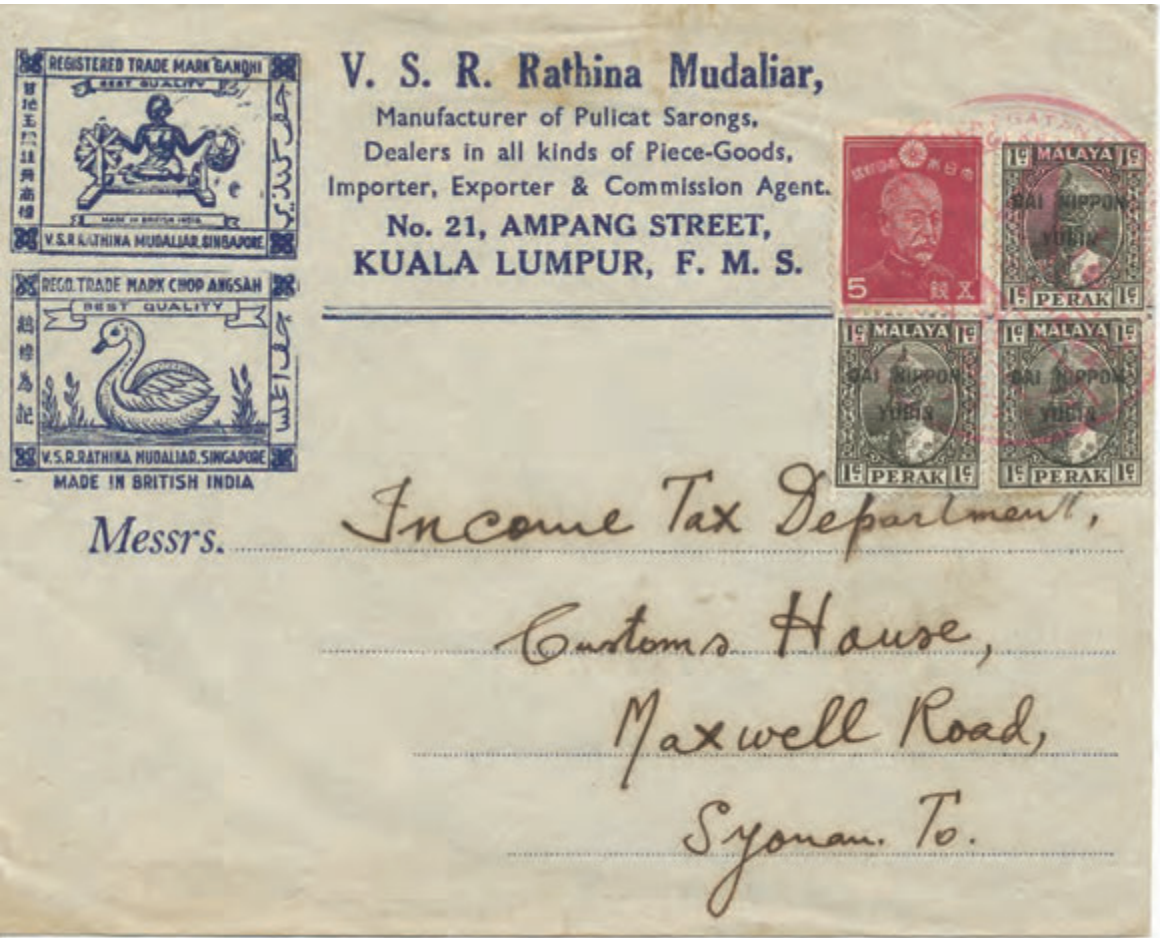 REGISTERED TRADE MARK GANDHI
BEST QUALITY
MADE IN BRITISH INDIA
V.S.R RATHINA MUDALIAR. SINGAPORE
REGD. TRADE MARK CHOP ANGSAH
BEST QUALITY
鵝標為記
V.S.R.RATHINA MUDALIAR. SINGAPORE
MADE IN BRITISH INDIA
V. S. R. Rathina Mudaliar,
Manufacturer of Pulicat Sarongs,
Dealers in all kinds of Piece-Goods,
Importer, Exporter & Commission Agent.
No. 21, AMPANG STREET,
KUALA LUMPUR, F. M. S.
大日本帝國郵便
5 五銭
1c MALAYA 1c
DAI NIPPON
YUBIN
1c PERAK 1c
1c MALAYA 1c
DAI NIPPON
YUBIN
1c PERAK 1c
1c MALAYA 1c
DAI NIPPON
YUBIN
1c PERAK 1c
Messrs. Income Tax Department,
Customs House,
Maxwell Road,
Syonan. To.